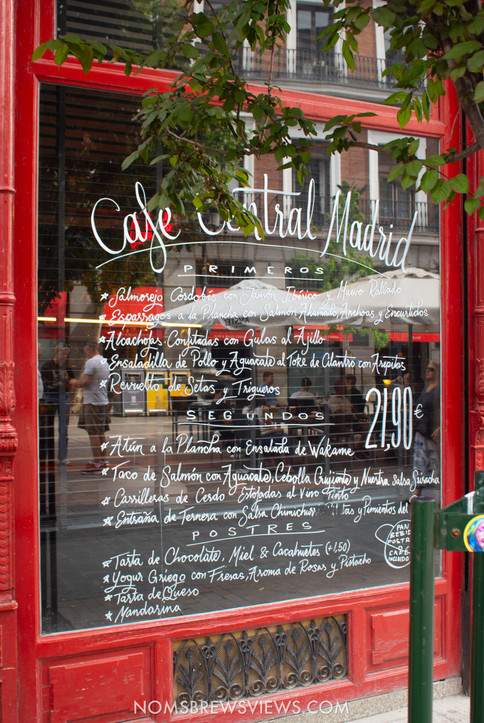 Café Central Madrid
PRIMEROS
* Salmorejo Cordobés con Jamón Ibérico y Huevo Rallado
* Espárragos a la Plancha con Salmón Ahumado, Anchoas y Encurtidos
* Alcachofas Confitadas con Gulas al Ajillo
* Ensaladilla de Pollo y Aguacate al Toke de Cilantro con Arepitas
* Revuelto de Setas y Trigueros
21,90 €
SEGUNDOS
* Atún a la Plancha con Ensalada de Wakame
* Taco de Salmón con Aguacate, Cebolla Crujiente y Nuestra Salsa Siracha
* Carrilleras de Cerdo Estofadas al Vino Tinto
* Entraña de Ternera con Salsa Chimichurri tas y Pimientos del
POSTRES
* Tarta de Chocolate, Miel & Cacahuetes (+1,50)
* Yogur Griego con Fresas, Aroma de Rosas y Pistacho
* Tarta de Queso
* Mandarina
PAN
POSTRE
CAFÉ
NOMSBREWSVIEWS.COM